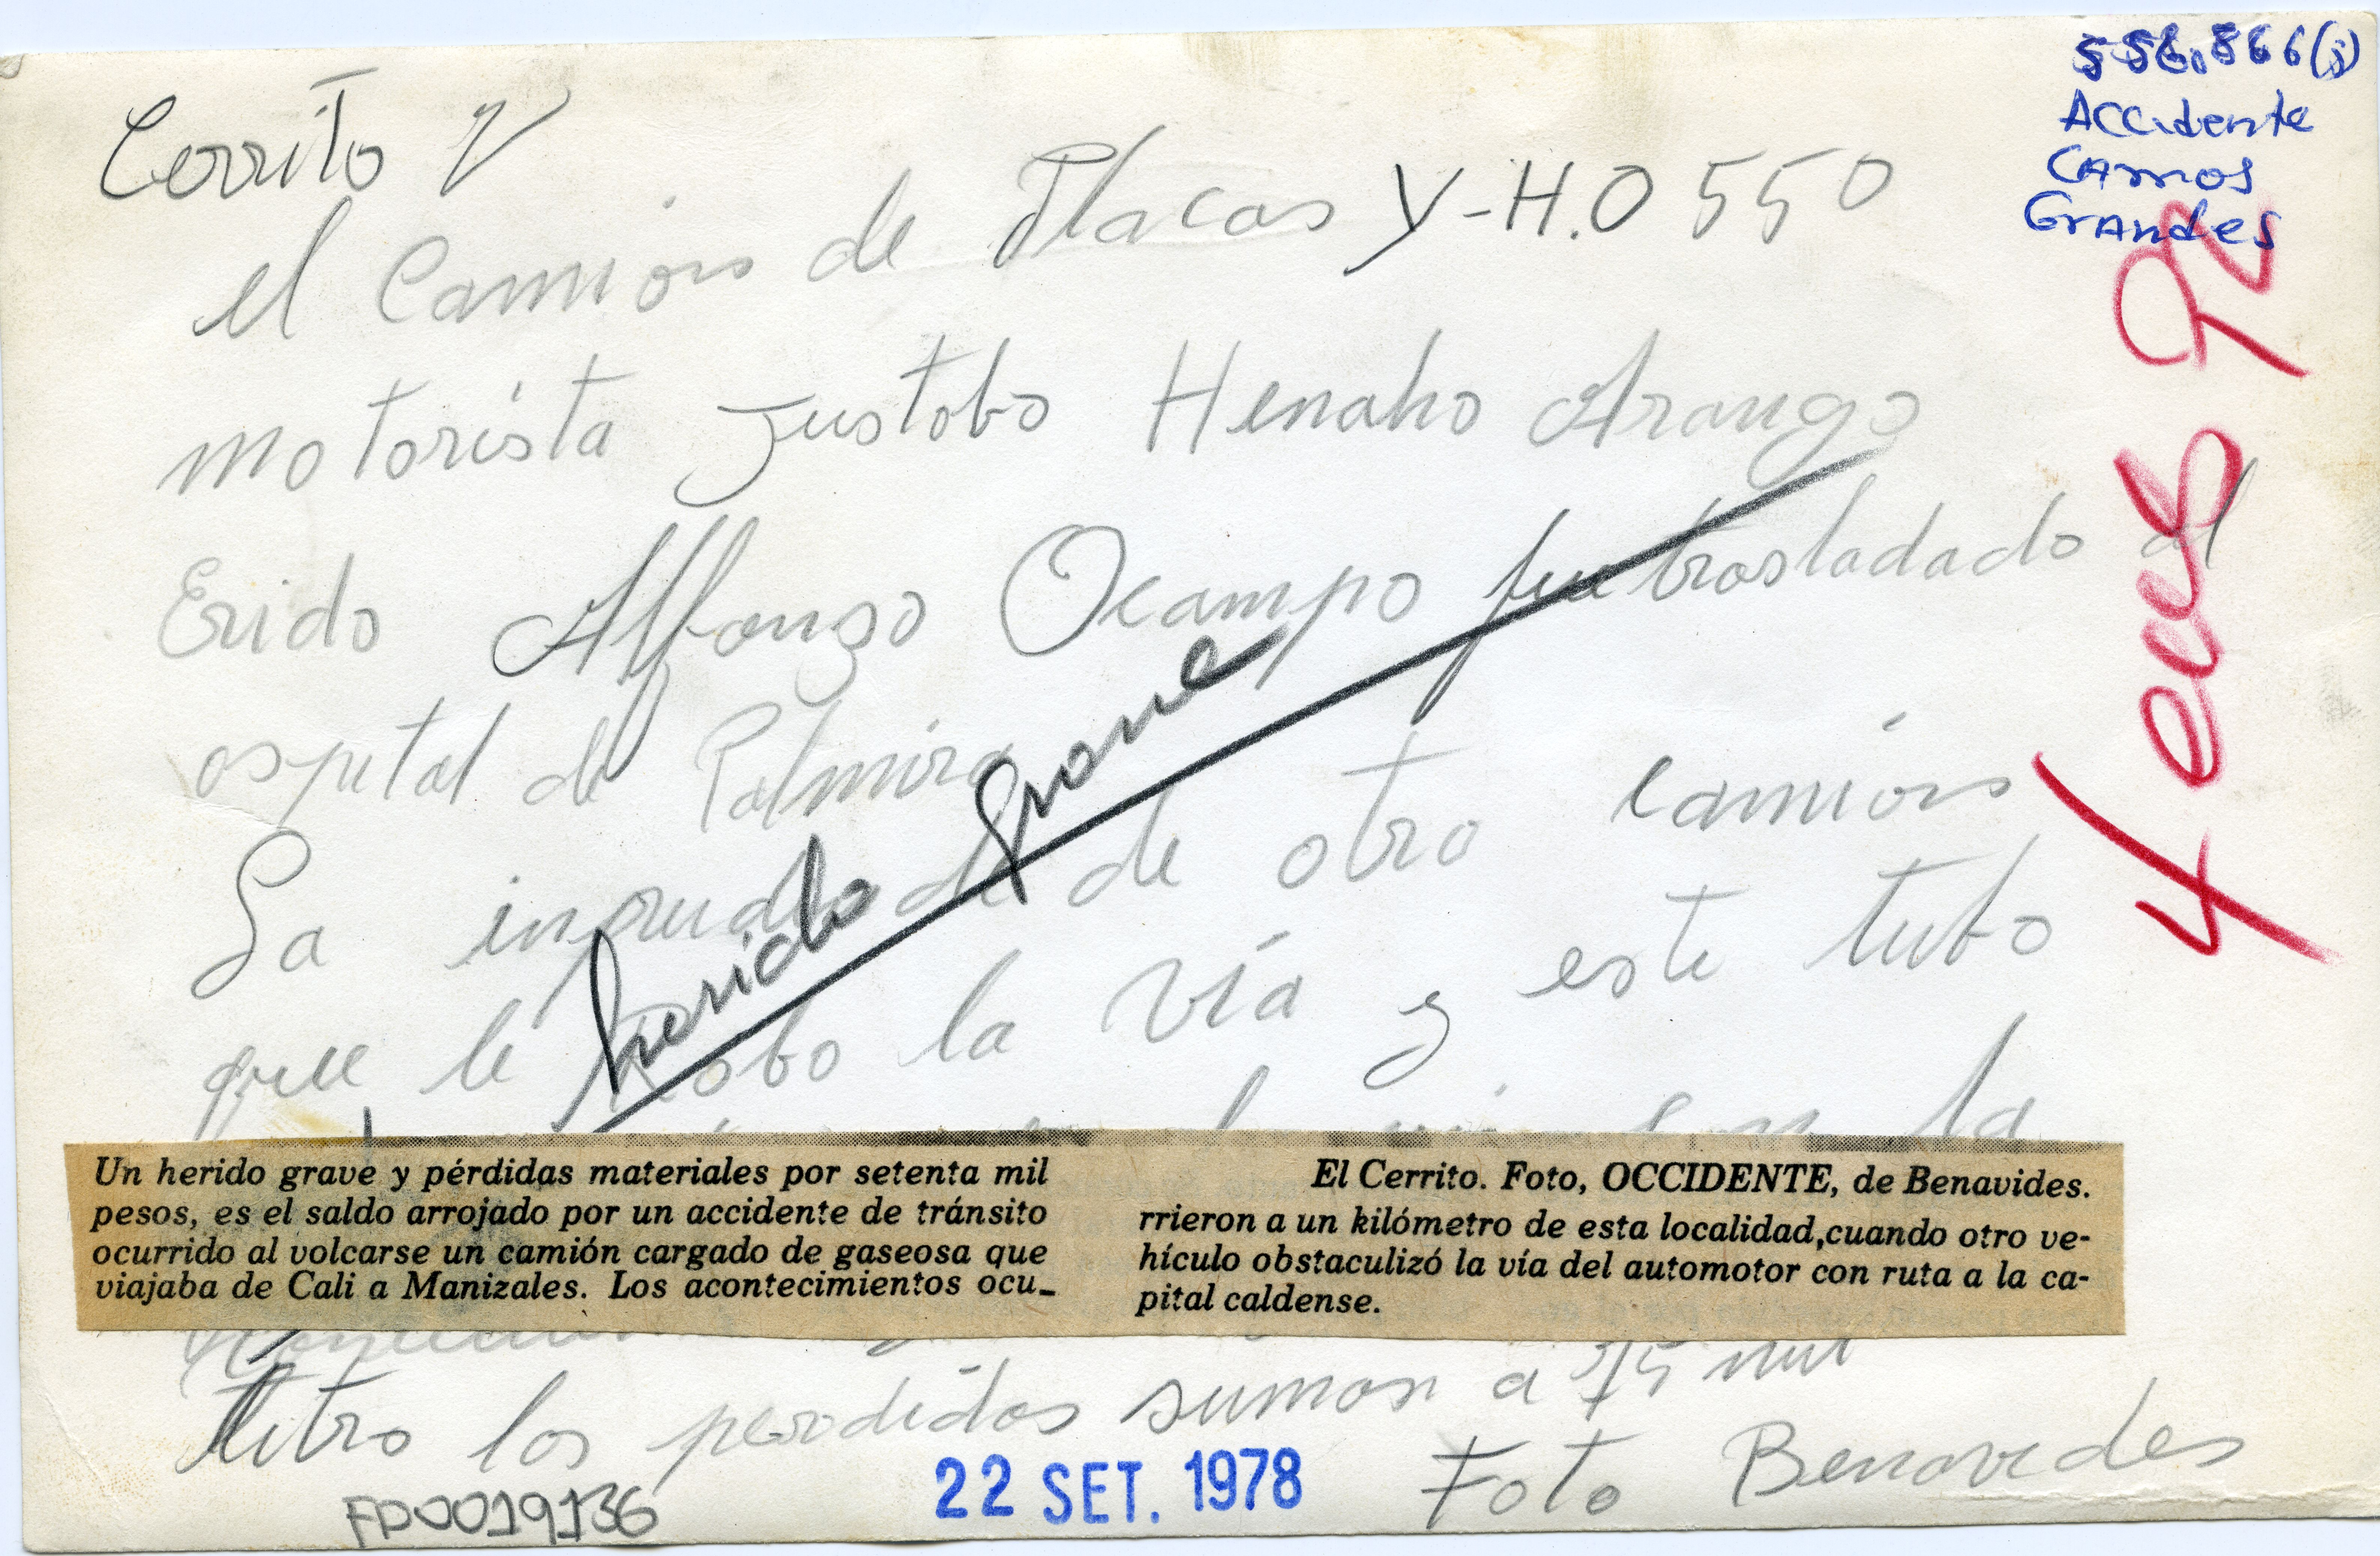 556.866(j)
Accidente
Carros
Grandes
Cerrito V
el Camion de Placas Y-H.0550
motorista Justobo Henaho Arango
Erido Alfonso Ocampo fue trasladado al
ospital de Palmira
herido grave
La de otro camion
que le robo la vía y este tubo
la
Un herido grave y pérdidas materiales por setenta mil
pesos, es el saldo arrojado por un accidente de tránsito
ocurrido al volcarse un camión cargado de gaseosa que
viajaba de Cali a Manizales. Los acontecimientos ocu-
El Cerrito. Foto, OCCIDENTE, de Benavides.
rrieron a un kilómetro de esta localidad,cuando otro ve-
hículo obstaculizó la vía del automotor con ruta a la ca-
pital caldense.
los perdidas suman a 75 mil
Foto Benavides
22 SET. 1978
FD0019136
4